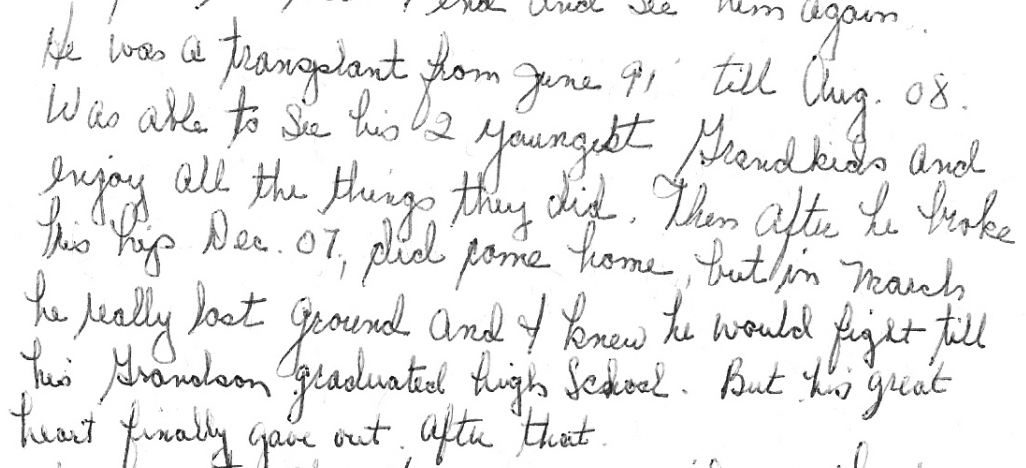 end and see him again.
He was a transplant from June 91 till Aug. 08.
Was able to see his 2 youngest Grandkids and
enjoy all the things they did. Then after he broke
his hip Dec. 07, did come home, but in March
he really lost ground and I knew he would fight till
his Grandson graduated high School. But his great
heart finally gave out. After that.